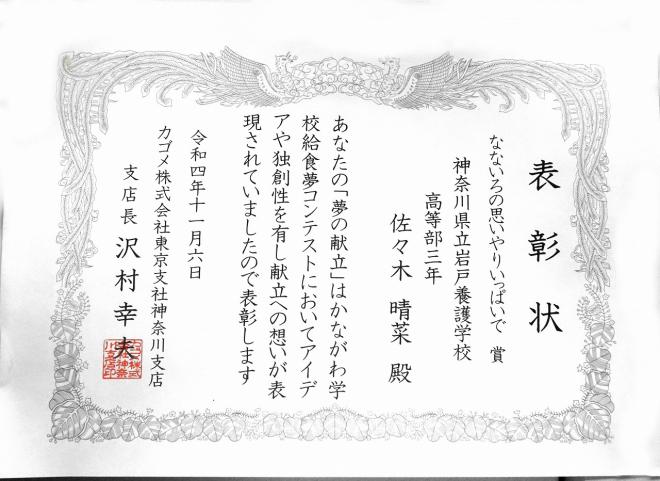 表彰状
なないろの思いやりいっぱいで 賞
神奈川県立岩戸養護学校
高等部三年
佐々木 晴菜 殿
あなたの「夢の献立」はかながわ学
校給食夢コンテストにおいてアイデ
アや独創性を有し献立への想いが表
現されていましたので表彰します
令和四年十一月六日
カゴメ株式会社東京支社神奈川支店
支店長 沢村幸夫